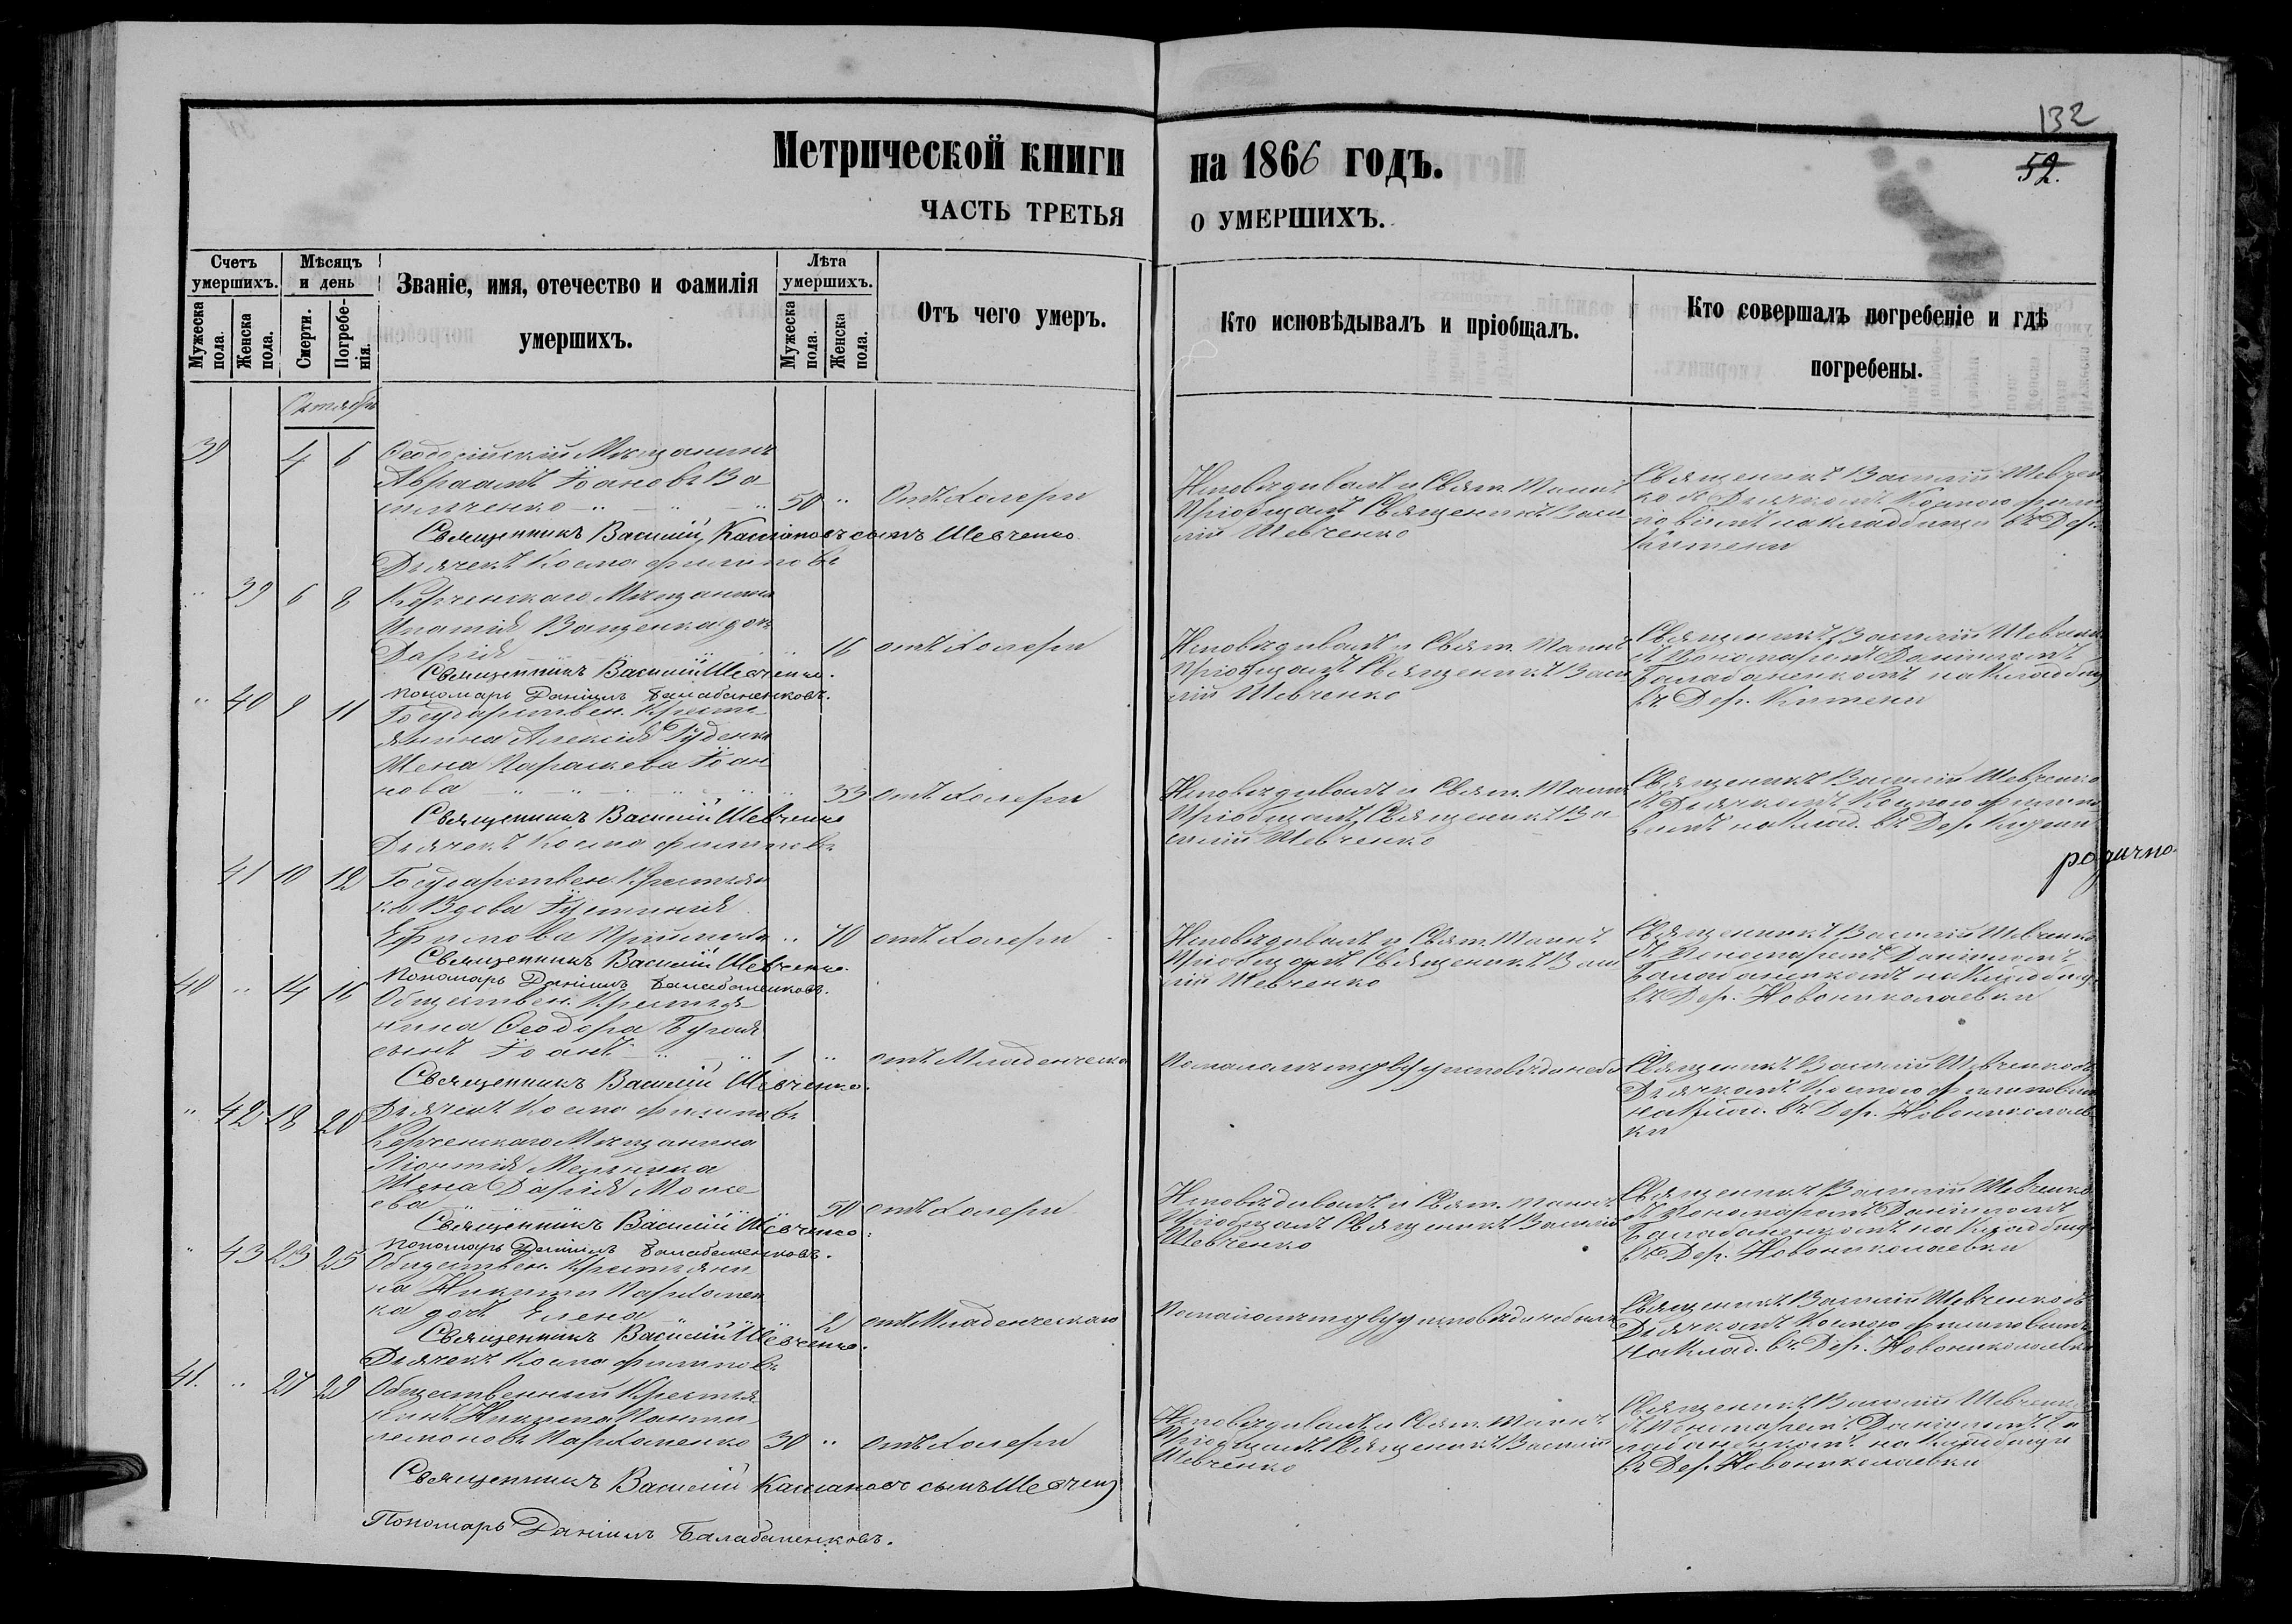 132
52.
Метрической книги на 1866 годъ.
ЧАСТЬ ТРЕТЬЯ О УМЕРШИХЪ.
Счетъ умершихъ.
Мужеска пола.
Женска пола.
Мѣсяцъ и день
Смерти.
Погребенія.
Званіе, имя, отечество и фамилія
умершихъ.
Лѣта умершихъ.
Мужеска пола.
Женска пола.
Отъ чего умеръ.
Кто исповѣдывалъ и пріобщалъ.
Кто совершалъ погребеніе и гдѣ
погребены.
Октябрь
39 4 6 Ѳеодосійскій Мѣщанинъ
Авраамъ Іоановъ Ва
щенко 50 " Отъ Холеры
Священникъ Василій Кассіановъ сынъ Шевченко
Дьячекъ Косма Филиповъ
Исповѣдывалъ и Свят. Таинъ
Пріобщалъ Священникъ Васи
лій Шевченко
Священникъ Василій Шевчен
ко съ Дьячкомъ Космою Фили
повымъ на кладбищи въ Дер.
Китени
" 39 6 8 Керченскаго Мѣщанина
Игнатія Ващенка дочь
Дарія 16 отъ Холеры
Священникъ Василій Шевченко.
Пономарь Даніилъ Балабаненковъ.
Исповѣдывалъ и Свят. Таинъ
Пріобщалъ Священникъ Васи
лій Шевченко
Священникъ Василій Шевченко
съ Пономаремъ Даніиломъ
Балабаненкомъ на Кладбищ
въ Дер. Китени
" 40 9 11 Государствен. Кресть
янина Алексія Гуденка
Жена Параскева Іоан
нова 33 отъ Холеры
Священникъ Василій Шевченко
Дьячекъ Косма Филиповъ
Исповѣдывалъ и Свят. Таинъ
Пріобщалъ Священникъ Ва
силій Шевченко
Священникъ Василій Шевченко
съ Дьячкомъ Космою Филипо
вымъ на Клад. въ Дер.
41 10 12 Государствен. Крестьян
ка Вдова Іустинія
Ефимова " 70 отъ Холеры
Священникъ Василій Шевченко.
Пономарь Даніилъ Балабаненковъ.
Исповѣдывалъ и Свят. Таинъ
Пріобщалъ Священникъ Васи
лій Шевченко
Священникъ Василій Шевченко
съ Пономаремъ Даніиломъ
Балабаненкомъ на Кладбищ
въ Дер. Новониколаевки
40 " 14 16 Обществен. Крестья
нина Ѳеодора Бугая
сынъ Іоанъ 1 " отъ Младенческо
Священникъ Василій Шевченко.
Дьячекъ Косма Филиповъ
По малолетству у исповѣди небы
Священникъ Василій Шевченко съ
Дьячкомъ Космою Филиповым
на Клад. въ Дер. Новониколаев
ки
" 42 18 20 Керченскаго Мѣщанина
Леонтія Мельника
Жена Дарія Моисе
ева 50 отъ Холеры
Священникъ Василій Шевченко.
Пономарь Даніилъ Балабаненковъ.
Исповѣдывалъ и Свят. Таинъ
Пріобщалъ Священникъ Василій
Шевченко
Священникъ Василій Шевченко
съ Пономаремъ Даніиломъ
Балабаненкомъ на Кладбищ
въ Дер. Новониколаевки
" 43 23 25 Обществен. Крестьяни
на Никиты Пархомен
ка дочь Елена 2 отъ Младенческаго
Священникъ Василій Шевченко.
Дьячекъ Косма Филиповъ
По малолетству у исповѣди небыла
Священникъ Василій Шевченко съ
Дьячкомъ Космою Филиповымъ
на Клад. въ Дер. Новониколаевки
41. " 27 29 Общественный Крестья
нинъ Никита Панте
лемоновъ Пархоменко 30 " отъ Холеры
Священникъ Василій Кассіановъ сынъ Шевченко
Пономарь Даніилъ Балабаненковъ.
Исповѣдывалъ и Свят. Таинъ
Пріобщалъ Священникъ Василій
Шевченко
Священникъ Василій Шевченко
съ Пономаремъ Даніиломъ Ба
лабаненкомъ на Кладбищи
въ Дер. Новониколаевки